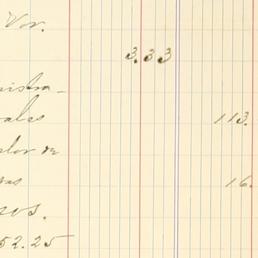 Vor.
3.33
nistra-
ales 113.
alor de
16.
sos.
52.25